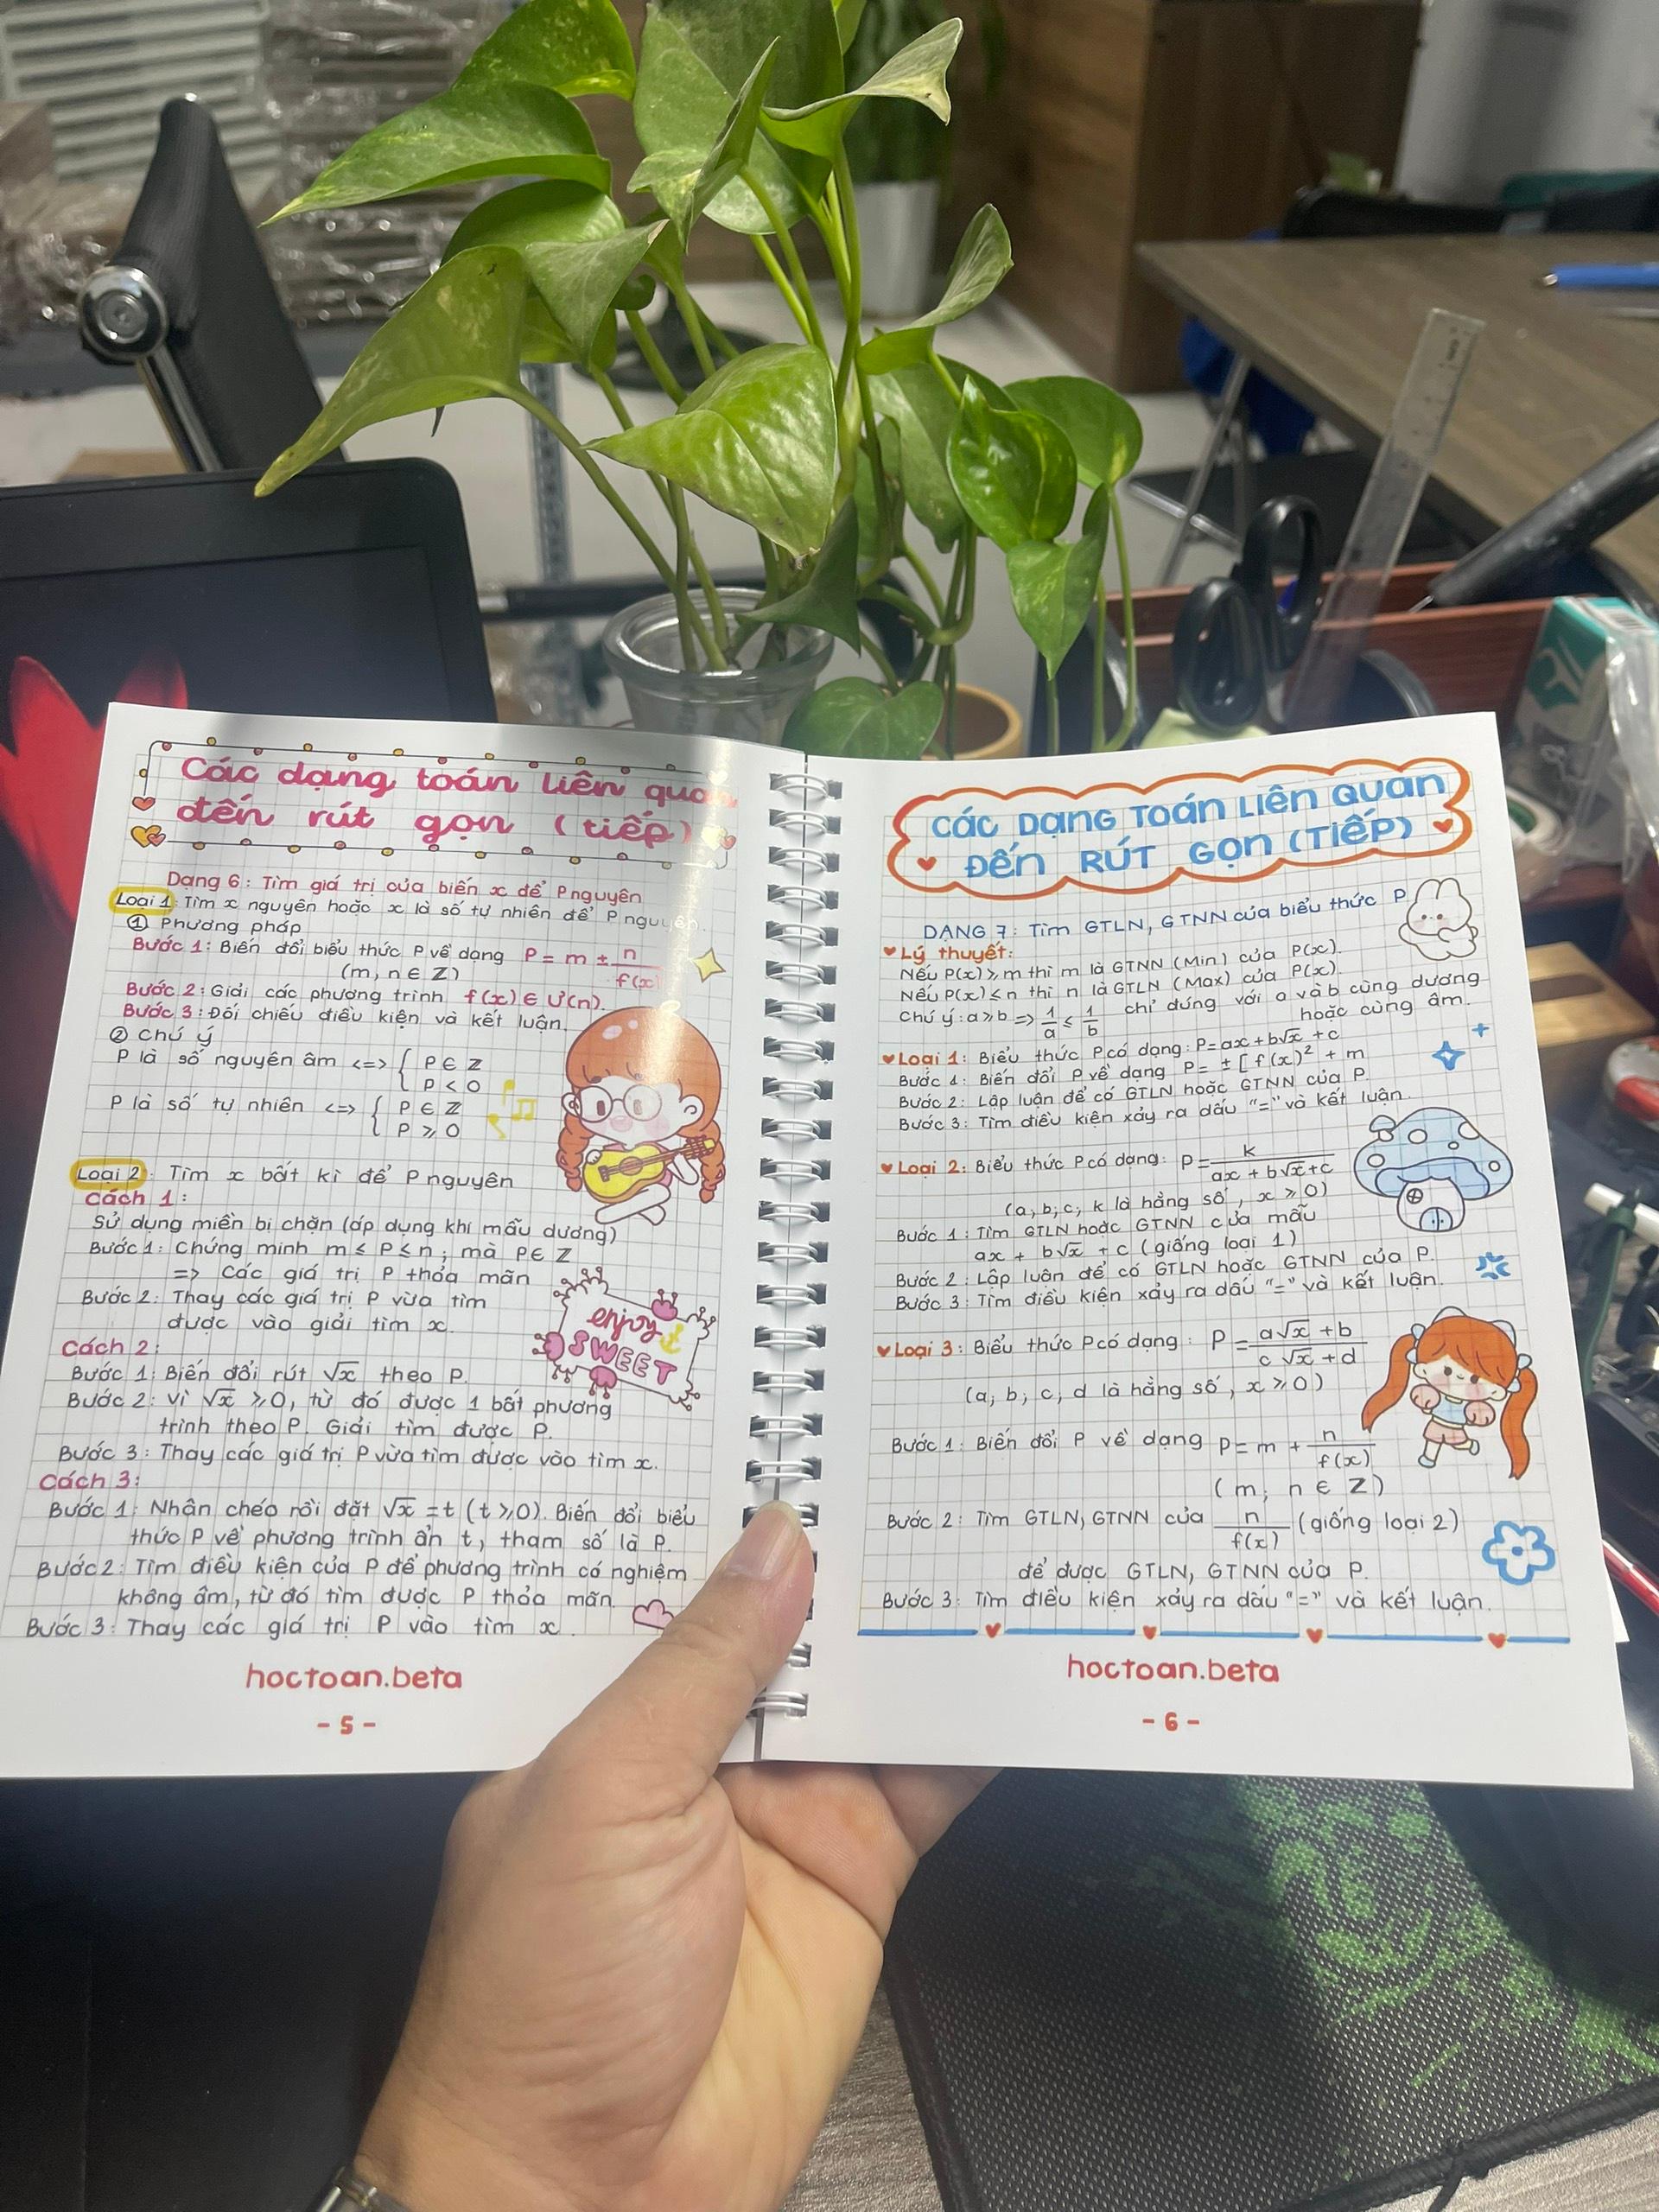 Các dạng toán liên quan
đến rút gọn (tiếp)
Dạng 6: Tìm giá trị của biến x để P nguyên
Loại 1: Tìm x nguyên hoặc x là số tự nhiên để P nguyên.
① Phương pháp
Bước 1: Biến đổi biểu thức P về dạng P = m ± n/f(x)
(m, n ∈ Z)
Bước 2: Giải các phương trình f(x) ∈ Ư(n).
Bước 3: Đối chiếu điều kiện và kết luận.
② Chú ý
P là số nguyên âm <=> { P ∈ Z
P < 0
P là số tự nhiên <=> { P ∈ Z
P ⩾ 0
Loại 2: Tìm x bất kì để P nguyên
Cách 1:
Sử dụng miền bị chặn (áp dụng khi mẫu dương)
Bước 1: Chứng minh m ≤ P ≤ n; mà P ∈ Z
=> Các giá trị P thỏa mãn
Bước 2: Thay các giá trị P vừa tìm
được vào giải tìm x.
enjoy
SWEET
Cách 2:
Bước 1: Biến đổi rút √x theo P.
Bước 2: Vì √x ⩾ 0, từ đó được 1 bất phương
trình theo P. Giải tìm được P.
Bước 3: Thay các giá trị P vừa tìm được vào tìm x.
Cách 3:
Bước 1: Nhân chéo rồi đặt √x = t (t ⩾ 0). Biến đổi biểu
thức P về phương trình ẩn t, tham số là P.
Bước 2: Tìm điều kiện của P để phương trình có nghiệm
không âm, từ đó tìm được P thỏa mãn.
Bước 3: Thay các giá trị P vào tìm x.
hoctoan.beta
- 5 -
CÁC DẠNG TOÁN LIÊN QUAN
ĐẾN RÚT GỌN (TIẾP)
DẠNG 7: Tìm GTLN, GTNN của biểu thức P
Lý thuyết:
Nếu P(x) ⩾ m thì m là GTNN (Min) của P(x).
Nếu P(x) ≤ n thì n là GTLN (Max) của P(x).
Chú ý: a ⩾ b => 1/a ≤ 1/b chỉ đúng với a và b cùng dương
hoặc cùng âm.
Loại 1: Biểu thức P có dạng: P = ax + b√x + c
Bước 1: Biến đổi P về dạng P = ± [f(x)² + m
Bước 2: Lập luận để có GTLN hoặc GTNN của P.
Bước 3: Tìm điều kiện xảy ra dấu "=" và kết luận.
Loại 2: Biểu thức P có dạng: P = k/(ax + b√x + c)
(a, b, c, k là hằng số, x ⩾ 0)
Bước 1: Tìm GTLN hoặc GTNN của mẫu
ax + b√x + c (giống loại 1)
Bước 2: Lập luận để có GTLN hoặc GTNN của P.
Bước 3: Tìm điều kiện xảy ra dấu "=" và kết luận.
Loại 3: Biểu thức P có dạng: P = (a√x + b)/(c√x + d)
(a; b; c, d là hằng số, x ⩾ 0)
Bước 1: Biến đổi P về dạng P = m + n/f(x)
(m; n ∈ Z)
Bước 2: Tìm GTLN, GTNN của n/f(x) (giống loại 2)
để được GTLN, GTNN của P.
Bước 3: Tìm điều kiện xảy ra dấu "=" và kết luận.
hoctoan.beta
- 6 -